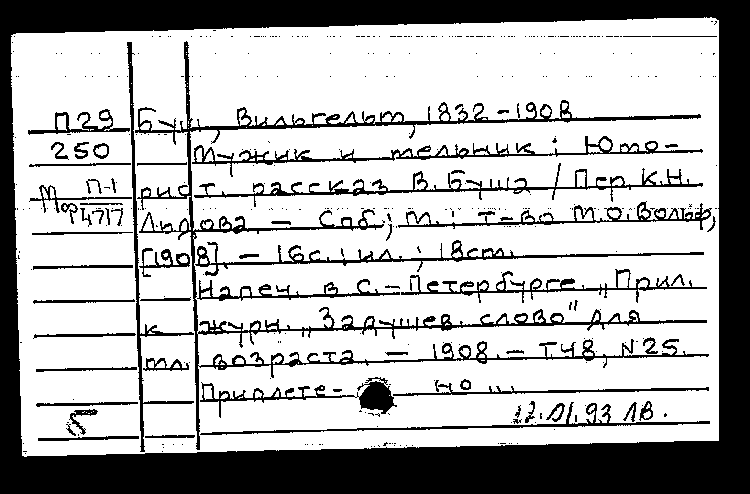 П29 Буш, Вильгельм, 1832-1908
250 Мужик и мельник : Юмо-
Мор П-1/4717 рист. рассказ В. Буша / Пер. К.Н.
Льдова. - Спб; М. : т-во М.О. Вольф,
[1908]. - 16с. : ил. ; 18см.
Напеч. в С.-Петербурге. „Прил.
к журн. „Задушев. слово" для
мл. возраста. - 1908. - Т48, N25.
Приплете- но ...
12.01.93 ЛВ.